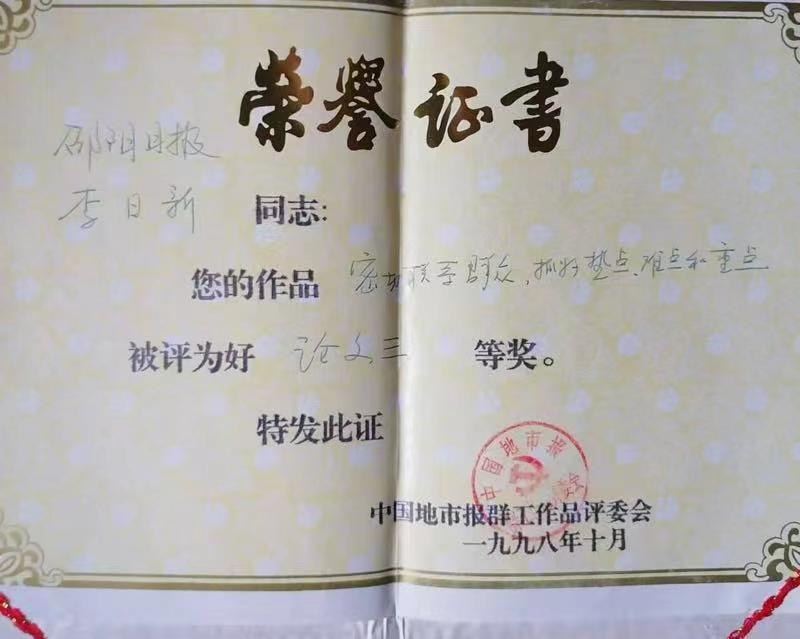 荣誉证书
邵阳日报
李日新 同志:
您的作品 密切联系群众,抓好热点、难点和重点
被评为好 论文三 等奖。
特发此证
中国地市报
中国地市报群工作品评委会
一九九八年十月